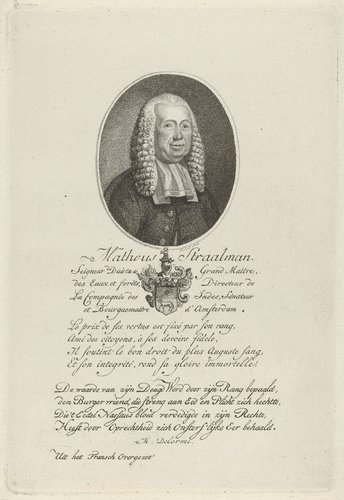 Matheus Straalman
Seigneur Duiste, Grand Maître,
des Eaux et forêts, Directeur de
La Compagnie des Indes, Sénateur
et Bourguemaître d'Amsterdam,
Le prix de ses vertus est fixé par son rang,
Ami des citoyens, à ses devoirs fidèle,
Il soutint le bon droit du plus Auguste sang,
Et son integrité, rend sa gloire immortelle.
De waarde van zijn Deugd Werd door zijn Rang bepaald,
den Burger vriend, die streng aan Eed en Plicht zich hechtte,
Die't Edel Nassaus bloed verdedigde in zijn Rechte,
Heeft door Oprechtheid zich Onsterflijke Eer behaald.
M. Delorme.
Uit het Fransch Overgezet